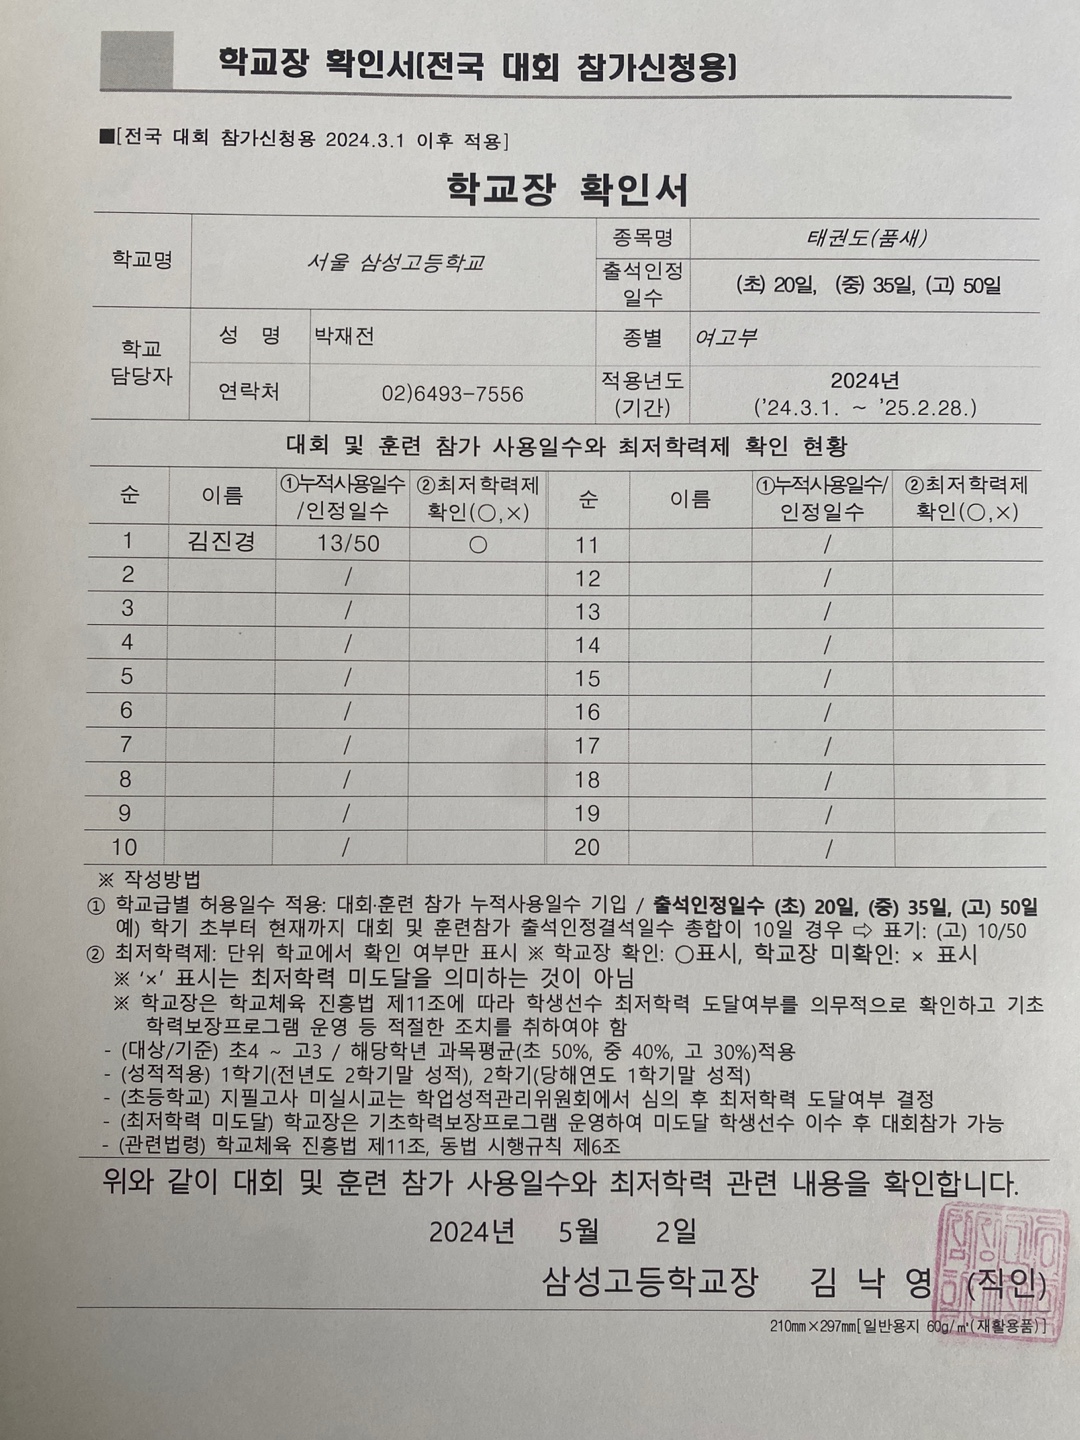 학교장 확인서(전국 대회 참가신청용)
■[전국 대회 참가신청용 2024.3.1 이후 적용]
학교장 확인서
학교명 서울 삼성고등학교 종목명 태권도(품새)
출석인정 일수 (초) 20일, (중) 35일, (고) 50일
학교 담당자 성 명 박재전 종별 여고부
연락처 02)6493-7556 적용년도 (기간) 2024년 ('24.3.1. ~ '25.2.28.)
대회 및 훈련 참가 사용일수와 최저학력제 확인 현황
순 이름 ①누적사용일수/인정일수 ②최저학력제 확인(○,×) 순 이름 ①누적사용일수/인정일수 ②최저학력제 확인(○,×)
1 김진경 13/50 ○ 11 /
2 / 12 /
3 / 13 /
4 / 14 /
5 / 15 /
6 / 16 /
7 / 17 /
8 / 18 /
9 / 19 /
10 / 20 /
※ 작성방법
① 학교급별 허용일수 적용: 대회·훈련 참가 누적사용일수 기입 / 출석인정일수 (초) 20일, (중) 35일, (고) 50일
예) 학기 초부터 현재까지 대회 및 훈련참가 출석인정결석일수 총합이 10일 경우 ⇨ 표기: (고) 10/50
② 최저학력제: 단위 학교에서 확인 여부만 표시 ※ 학교장 확인: ○표시, 학교장 미확인: × 표시
※ '×' 표시는 최저학력 미도달을 의미하는 것이 아님
※ 학교장은 학교체육 진흥법 제11조에 따라 학생선수 최저학력 도달여부를 의무적으로 확인하고 기초
학력보장프로그램 운영 등 적절한 조치를 취하여야 함
- (대상/기준) 초4 ~ 고3 / 해당학년 과목평균(초 50%, 중 40%, 고 30%)적용
- (성적적용) 1학기(전년도 2학기말 성적), 2학기(당해연도 1학기말 성적)
- (초등학교) 지필고사 미실시교는 학업성적관리위원회에서 심의 후 최저학력 도달여부 결정
- (최저학력 미도달) 학교장은 기초학력보장프로그램 운영하여 미도달 학생선수 이수 후 대회참가 가능
- (관련법령) 학교체육 진흥법 제11조, 동법 시행규칙 제6조
위와 같이 대회 및 훈련 참가 사용일수와 최저학력 관련 내용을 확인합니다.
2024년 5월 2일
삼성고등학교장 김 낙 영 (직인)
210㎜×297㎜[일반용지 60g/㎡(재활용품)]